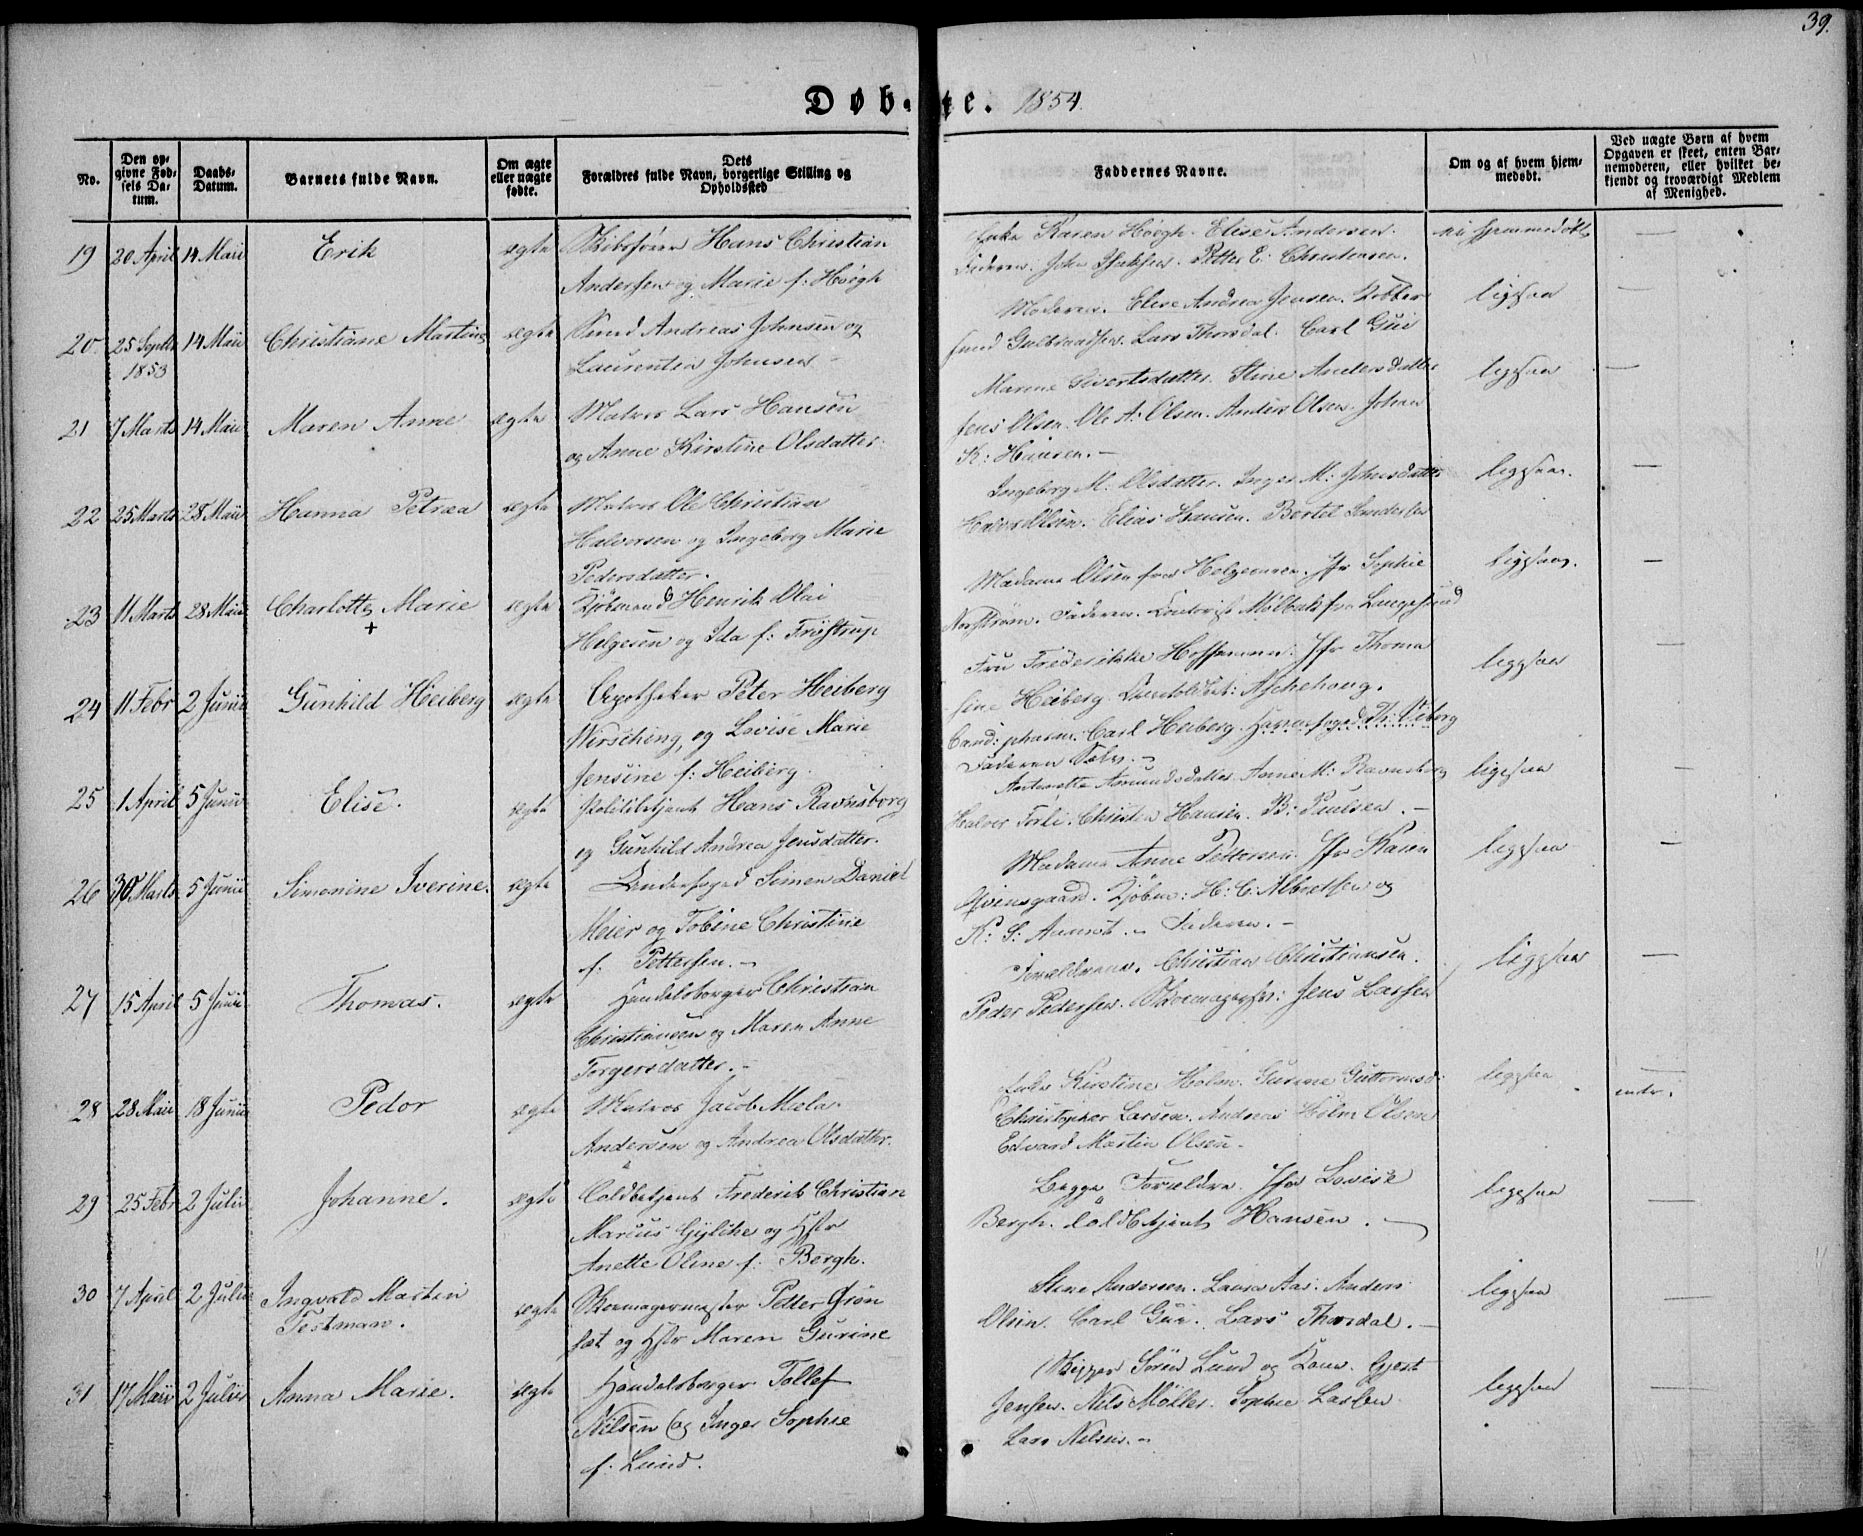 39.
Døbte. 1854.
No.
Den opgivne Fødsels Datum.
Daabs-Datum.
Barnets fulde Navn.
Om ægte eller uægte fødte.
Dets Forældres fulde Navn, borgerlige Stilling og Opholdssted
Faddernes Navne.
Om og af hvem hjemmedøbt.
Ved uægte Børn af hvem Opgaven er skeet, enten Barnemoderen, eller hvilket bekjendt og troværdigt Medlem af Menighed.
19 20 April 14 Maii Erik ægte Skibsfører Hans Christian
Andersen og Marie f: Høegh
Karen Høegh. Elise Andersen.
Faderen. John Isaksen. Petter E. Christensen.
ei hjemmedøbt
20 25 Septbr 1853 14 Maii Christiane Martine ægte Svend Andreas Johnsen og
Laurentia Johnsen
Moderen. Elise Andrea Jensen.
Gulbrandsen. Lars Thorsdal. Carl Gui
ligesaa
21 7 Marts 14 Maii Maren Anne ægte Matros Lars Hansen
og Anne Kirstine Olsdatter.
Marine Sivertsdatter. Stine Andersdatter
Jens Olsen. Ole A: Olsen. Anders Olsen. Johan
K: Hansen.
ligesaa
22 25 Marts 28 Maii Hanna Petrea ægte Matros Ole Christian
Halvorsen og Ingeborg Marie
Pedersdatter.
Ingeborg M: Olsdatter. Inger M: Johnsdatter
Halvor Olsen. Elias Hansen. Bertel Sandersen
ligesaa.
23 11 Marts 28 Maii Charlotte Marie + ægte Kjøbmand Henrik Olai
Helgesen og Ida f: Frøstrup
Madame Olsen fra Helgeroen. Jfr Sophie
Norstrøm. Faderen. Mølbak fra Langesund
ligesaa.
24 11 Febr 2 Junii Gunhild Heiberg ægte Apotheker Peter Heiberg
Wirsching, og Lovise Marie
Jensine f: Heiberg.
Fru Frederikke Hoffmann. Jfr Thoma
sine Heiberg. Aschehoug.
Cand: pharm: Carl Heiberg. Havnefoged Th: Viborg
Faderen Selv.
ligesaa
25 1 April 5 Junii Elise. ægte Politibetjent Hans Ravnsborg
og Gunhild Andrea Jensdatter.
Antonette Amundsdatter. Anne M: Ravnsborg
Halvor Torli. Christen Hansen. B: Paulsen.
ligesaa
26 30 Marts 5 Junii Simonine Iverine. ægte Simen Daniel
Meier og Tobine Christine
f: Pettersen.
Madame Anne Pettersen. Jfr Karen
Qvensgaard. Kjøbm: H: C: Albretsen og
K: S: Faderen.
ligesaa
27 15 April 5 Junii Thomas. ægte Handelsborger Christian
Christiansen og Maren Anne
Torgersdatter.
Forældrene. Christian Christiansen.
Peder Pedersen. Jens Larsen
ligesaa
28 28 Maii 18 Junii Peder ægte Matros Jacob
Andersen og Andrea Olsdatter.
Kirstine Holm. Gurine Guttormsd:
Christopher Larsen. Andreas Holm Olsen
Edvard Martin Olsen
ligesaa
29 25 Febr 2 Julii Johanne. ægte Toldbetjent Frederik Christian
Marcus Gylche og Hstr
Anette Oline f: Bergh.
Begge Forældre. Jfr Lovise
Bergh. Toldbetjent Hansen.
ligesaa
30 7 April 2 Julii Ingvald Martin
Testman. ægte Skomagermester Petter Grøn
sæt og Hstr Maren Gurine
Stine Andersen. Laura Aas. Anders
Olsen. Carl Gui. Lars Thorsdal.
ligesaa
31 17 Maii 2 Julii Anna Marie. ægte Handelsborger Tollef
Nilsen og Inger Sophie
f: Lund.
Skipper Søren Lund og Kone. Gjert
Jensen. Nils Møller. Sophie Larsen
Lars Nelsen.
ligesaa